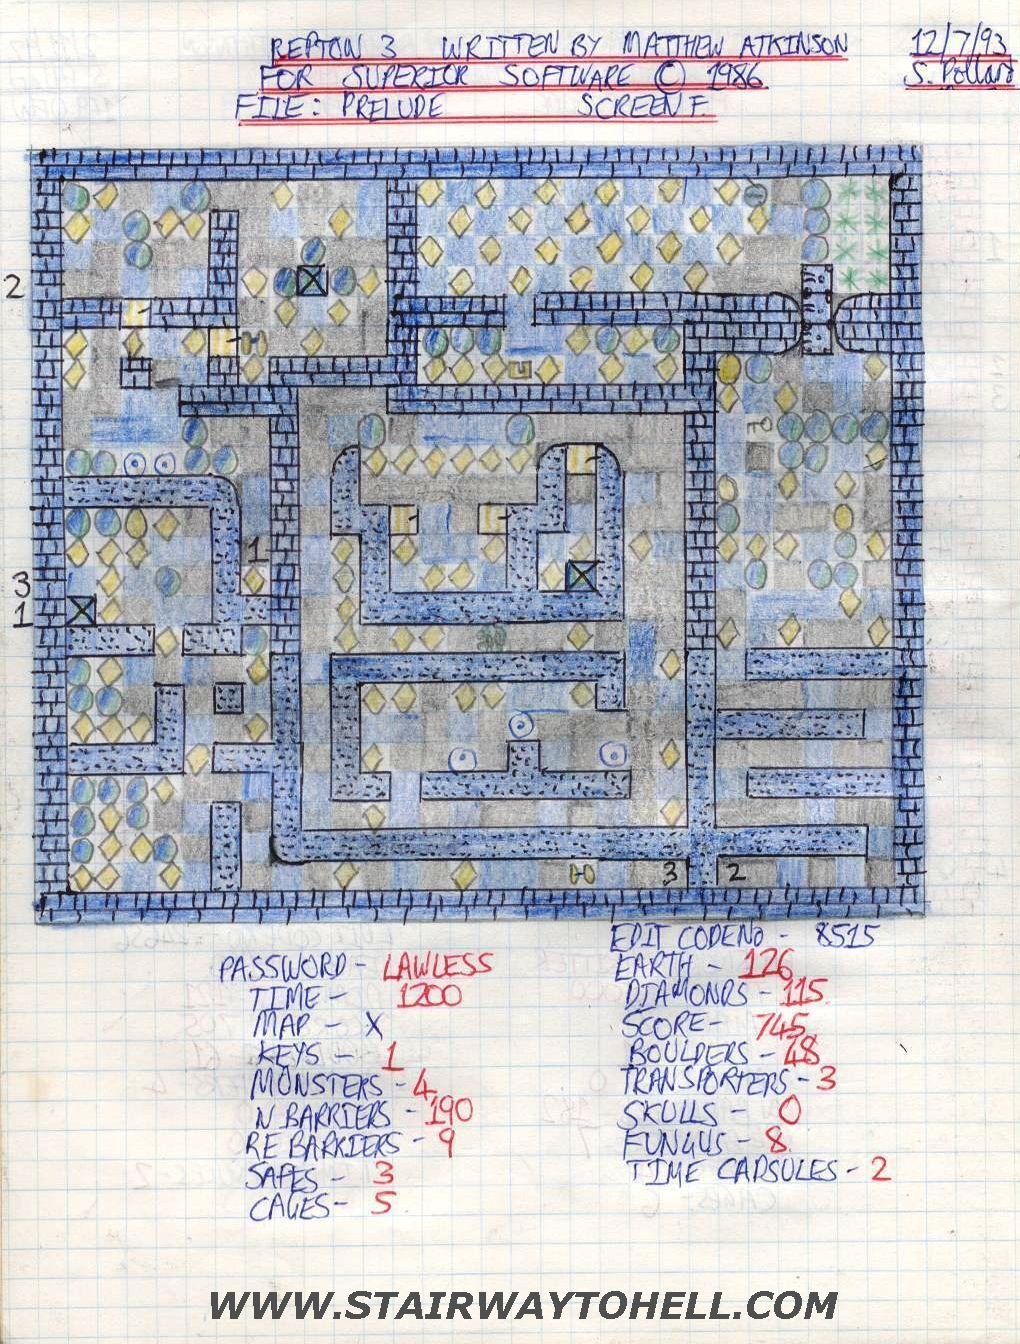 REPTON 3 WRITTEN BY MATTHEW ATKINSON 12/7/93
FOR SUPERIOR SOFTWARE © 1986 S. Pollard
FILE: PRELUDE SCREEN F.
2
1
3
1
3 2
EDIT CODE No - 8515
PASSWORD - LAWLESS
EARTH - 126
TIME - 1200
DIAMONDS - 115
MAP - X
SCORE - 745
KEYS - 1
BOULDERS - 48
MONSTERS - 4
TRANSPORTERS - 3
N BARRIERS - 190
SKULLS - 0
RE BARRIERS - 9
FUNGUS - 8
SAFES - 3
TIME CAPSULES - 2
CAGES - 5
WWW.STAIRWAYTOHELL.COM